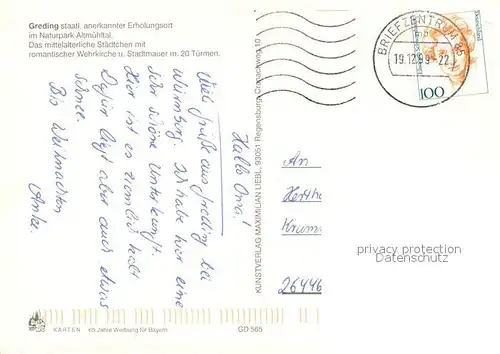 Greding staatl. anerkannter Erholungsort
im Naturpark Altmühltal.
Das mittelalterliche Städtchen mit
romantischer Wehrkirche u. Stadtmauer m. 20 Türmen.
Hallo Oma!
Viele Grüße aus bei
Ich habe hier eine
sehr schöne Unterkunft.
Hier ist es ziemlich kalt
Dafür liegt aber auch etwas
Schnee.
Bis Weihnachten
Anke.
KUNSTVERLAG MAXIMILIAN LIEBL, 93051 Regensburg, Cranachweg 10
BRIEFZENTRUM 85
19.12.99-22
100
An
Herth
Krumm
26446
privacy protection
Datenschutz
KARTEN Jahre Werbung für Bayern
GD 565